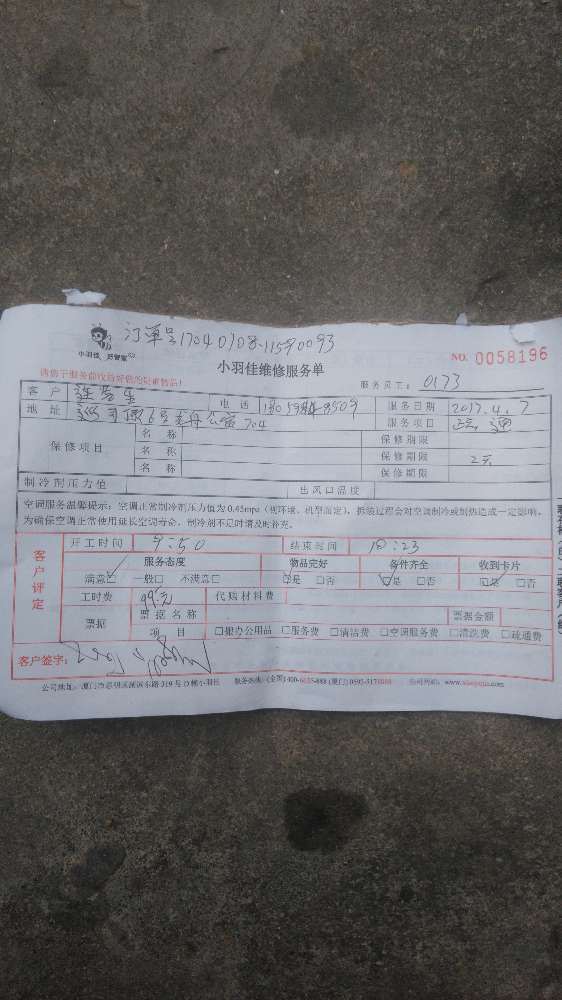 订单号17040108-11590093
小羽佳 好管家
小羽佳维修服务单
NO. 0058196
请您于服务前收拾好您的贵重物品!
服务员工: 0173
客户 电话 服务日期 2017.4.7
地址 6号 公寓704 服务项目 疏通
保修项目 名称 保修期限
名称 保修期限 2天
名称 保修期限
制冷剂压力值 出风口温度
空调服务温馨提示: 空调正常制冷剂压力值为0.45mpa (视环境、机型而定), 拆装过程会对空调制冷或制热造成一定影响,
为确保空调正常使用延长空调寿命, 制冷剂不足时请及时补充。
客户评定
开工时间 9:50 结束时间 10:23
服务态度 物品完好 备件齐全 收到卡片
满意☑ 一般□ 不满意□ ☑是 □否 ☑是 □否 ☑是 □否
工时费 99元 代购材料费
票据 票据名称 票据金额
项目 □报办公用品 □服务费 □清洁费 □空调服务费 □清洗费 □疏通费
客户签字: